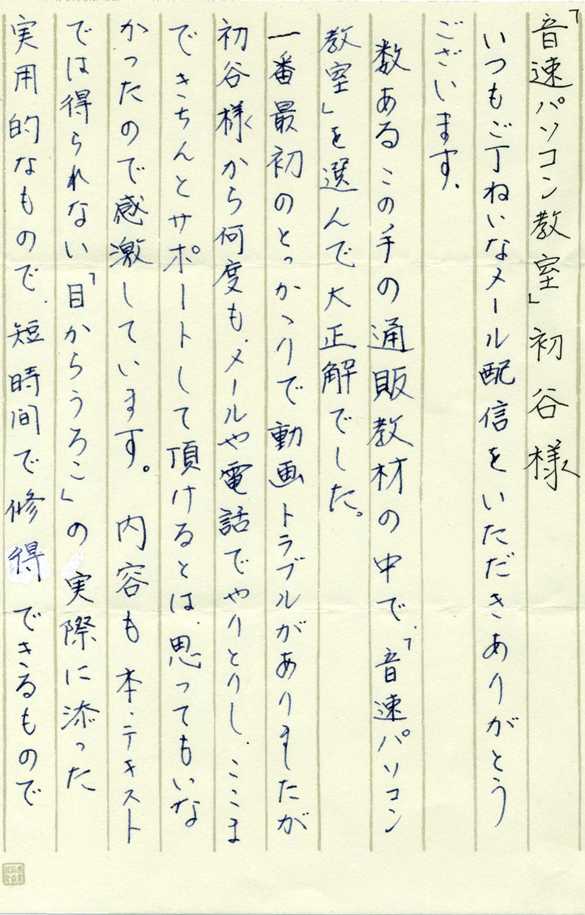 「音速パソコン教室」初谷様
いつもご丁ねいなメール配信をいただきありがとう
ございます。
数あるこの手の通販教材の中で、「音速パソコン
教室」を選んで大正解でした。
一番最初のとっかゝりで動画トラブルがありましたが
初谷様から何度も、メールや電話でやりとりし、ここま
できちんとサポートして頂けるとは、思ってもいな
かったので感激しています。 内容も本・テキスト
では得られない「目からうろこ」の実際に添った
実用的なもので、短時間で修得できるもので